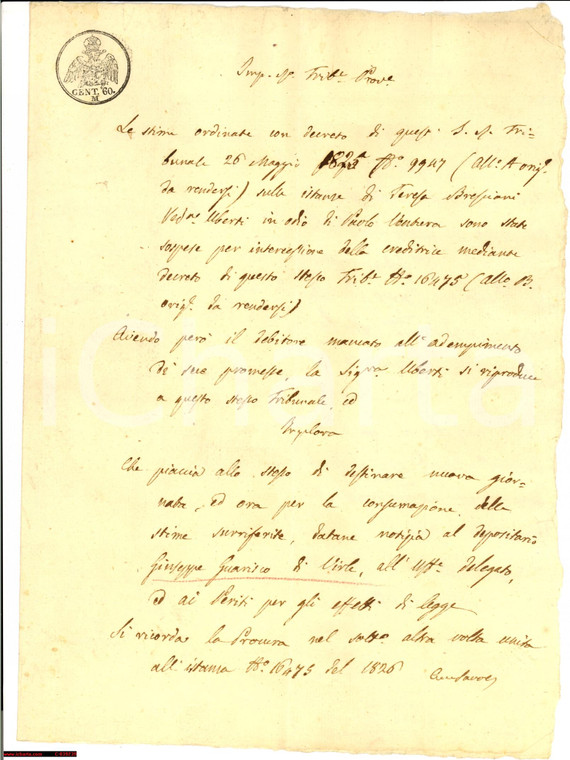 CENT. 60.
M
Imp. R. Trib.e Prov.e
Le stime ordinate con decreto di quest' I. R. Tri-
bunale 26 Maggio N.o 9947 (all.o A orig.
da rendersi) sulla istanza di Teresa Bressiani
Ved.va Uberti in odio di Paolo Ventura sono state
sospese per intercessione della creditrice mediante
decreto di questo stesso Trib.e N.o 16475 (all.o B.
orig. da rendersi)
Avendo però il debitore mancato all'adempimento
di sue promesse, la Sig.ra Uberti si riproduce
a questo stesso Tribunale, ed
Implora
Che piaccia allo stesso di destinare nuova gior-
nata, ed ora per la consumazione della
stime surriferite, datane notizia al depositario
Giuseppe Guarisco di Virle, all'Uff.e delegato,
ed ai Periti per gli effetti di legge
Si ricorda la Procura nel solt.o altra volta unita
all'istanza N.o 16475 del 1826
iCharta